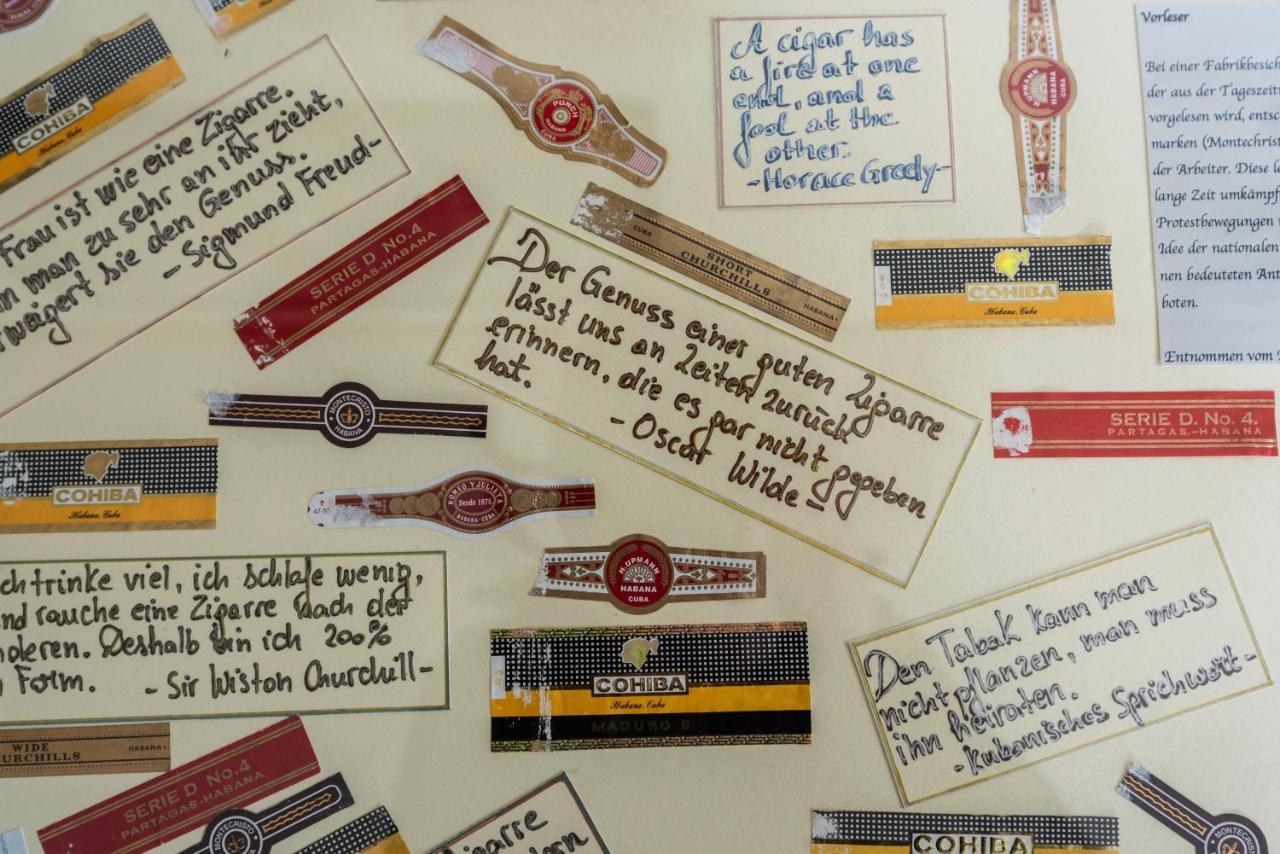 COHIBA
Habana, Cuba
Frau ist wie eine Zigarre.
nn man zu sehr an ihr zieht,
rweigert sie den Genuss.
- Sigmund Freud-
PUNCH
HABANA
CUBA
A cigar has
a fire at one
end, and a
fool at the
other.
-Horace Greely-
H.UPMANN
HABANA
CUBA
Vorleser
Bei einer Fabrikbesich
der aus der Tageszeit
vorgelesen wird, entsc
marken (Montechrist
der Arbeiter. Diese le
lange Zeit umkämpf
Protestbewegungen
Idee der nationalen
nen bedeuteten Ant
boten.
Entnommen vom
SERIE D No.4
PARTAGAS-HABANA
CUBA
SHORT
CHURCHILLS
HABANA
COHIBA
Habana, Cuba
Der Genuss einer guten Zigarre
lässt uns an Zeiten zurück
erinnern, die es gar nicht gegeben
hat.
- Oscar Wilde -
MONTECRISTO
HABANA
SERIE D. No. 4.
PARTAGAS.-HABANA
COHIBA
Habana, Cuba
ROMEO Y JULIETA
Desde 1875
HABANA CUBA
H.UPMANN
HABANA
CUBA
ch trinke viel, ich schlafe wenig,
nd rauche eine Zigarre nach der
nderen. Deshalb bin ich 200%
n Form.
- Sir Wiston Churchill-
COHIBA
Habana, Cuba
MADURO 5
Den Tabak kann man
nicht pflanzen, man muss
ihn heiraten.
- Kubanisches Sprichwort -
WIDE
URCHILLS
HABANA
SERIE D No.4
PARTAGAS-HABANA
MONTECRISTO
igarre
COHIBA
MONTECRISTO